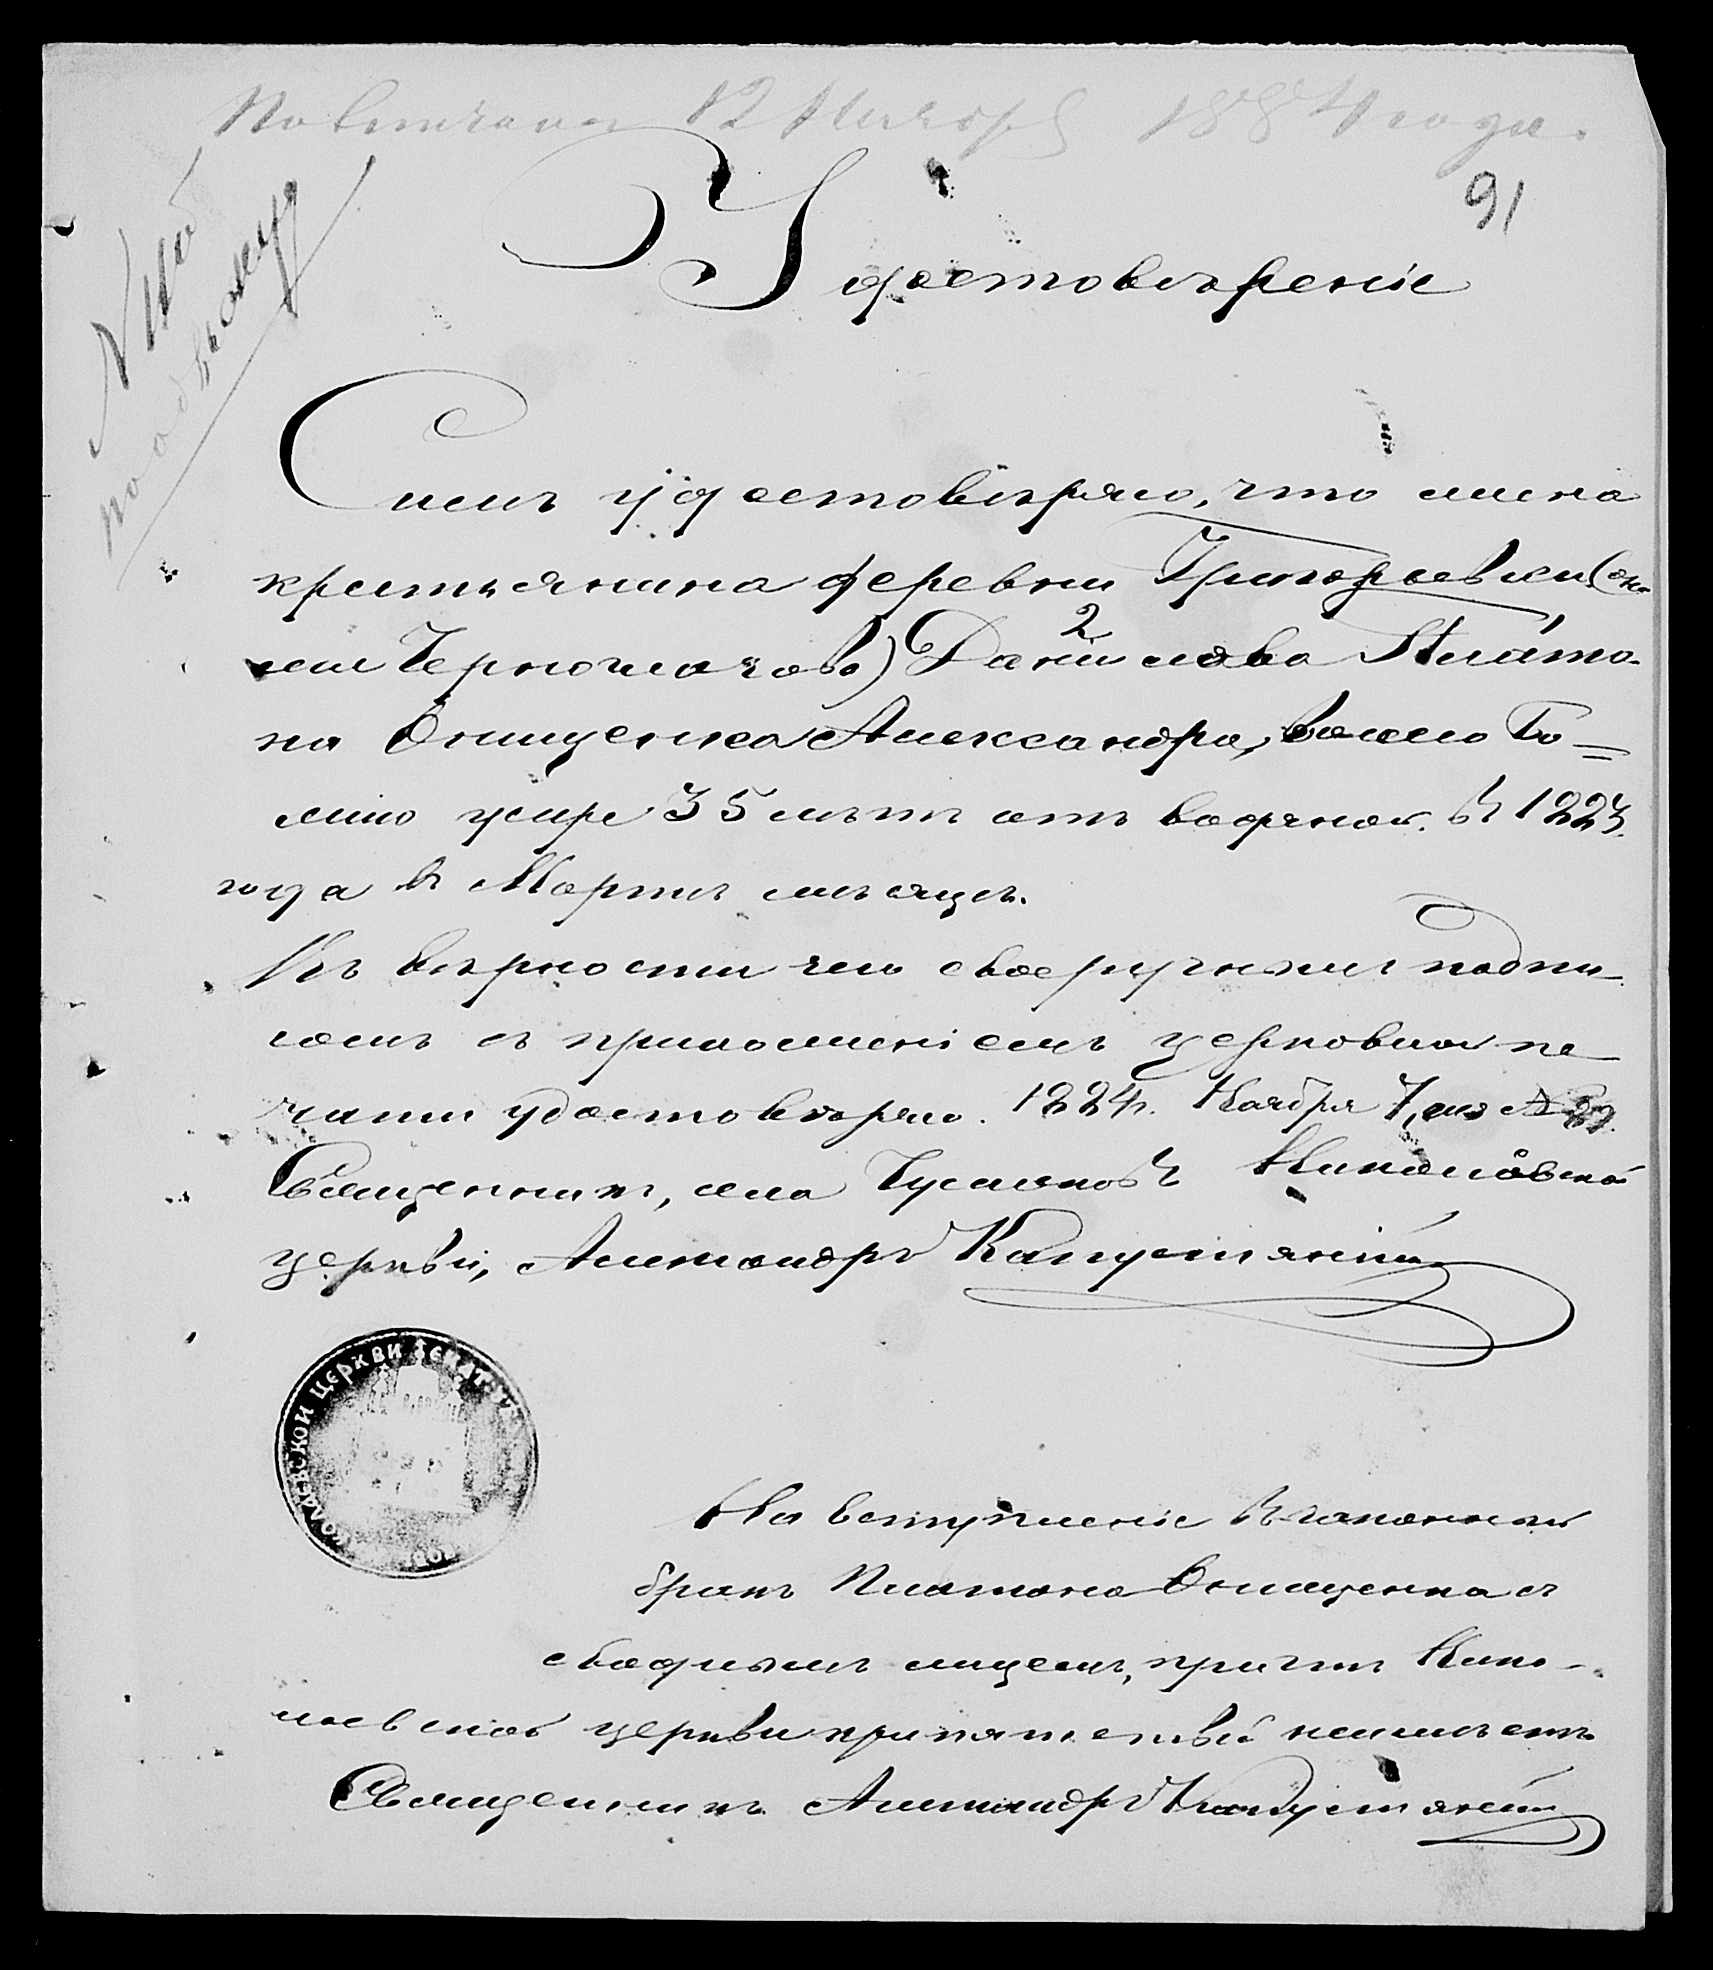 Повѣнчаны 12 Ноября 1884 года.
91
N 116
по обыску
Удостовѣреніе
Симъ удостовѣряю, что жена
крестьянина деревни Григорьевки (она
же Черноглазово) Данилова Плато-
на Онищенка Александра, волею Бо-
жіею умре 35 лѣтъ отъ водянки въ 1883
года въ Мартѣ мѣсяцѣ.
Въ вѣрности чего своеручнымъ подпи-
сомъ съ приложеніемъ церковной пе-
чати удостовѣряю. 1884 г. Ноября 7, дня № 89.
Священникъ, села Николаевской
церкви, Александръ Капустянскій
НИКОЛАЕВСКОЙ ЦЕРКВИ ЕКАТ
На вступленіе въ законный
бракъ Платона Онищенка съ
свободнымъ лицемъ, причтъ Нико-
лаевской церкви препятствій неимѣетъ
Священникъ Александръ Капустянскій